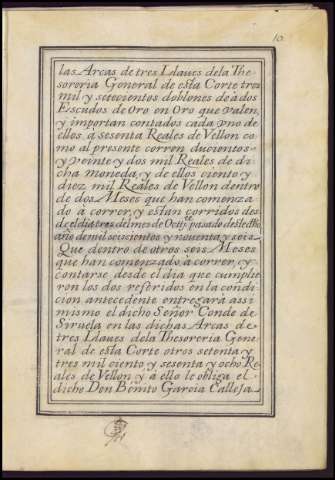 10
las Arcas de tres Llaues dela The
soreria General de esta Corte tres
mil y setecientos doblones de à dos
Escudos de Oro en Oro que valen,
y importan contados cada vno de
ellos à sesenta Reales de Vellon co
mo al presente corren ducientos
y veinte y dos mil Reales de di
cha moneda, y de ellos ciento y
diez mil Reales de Vellon dentro
de dos Meses que han comenza
do à correr, y estan corridos des
de el dia tres del mes de pasado deste
año de mil seiscientos y nouenta y seis
Que dentro de otros seis Meses
que han comenzado à correr, y
contarse desde el dia que cumplie
ron los dos referidos en la condi
cion antecedente entregarà assi
mismo el dicho Señor Conde de
Siruela en las dichas Arcas de
tres Llaues dela Thesoreria Gene
ral de esta Corte otros setenta y
tres mil ciento y sesenta y ocho Re
ales de Vellon y à ello le obliga el
dicho Don Benito Garcia Calleja